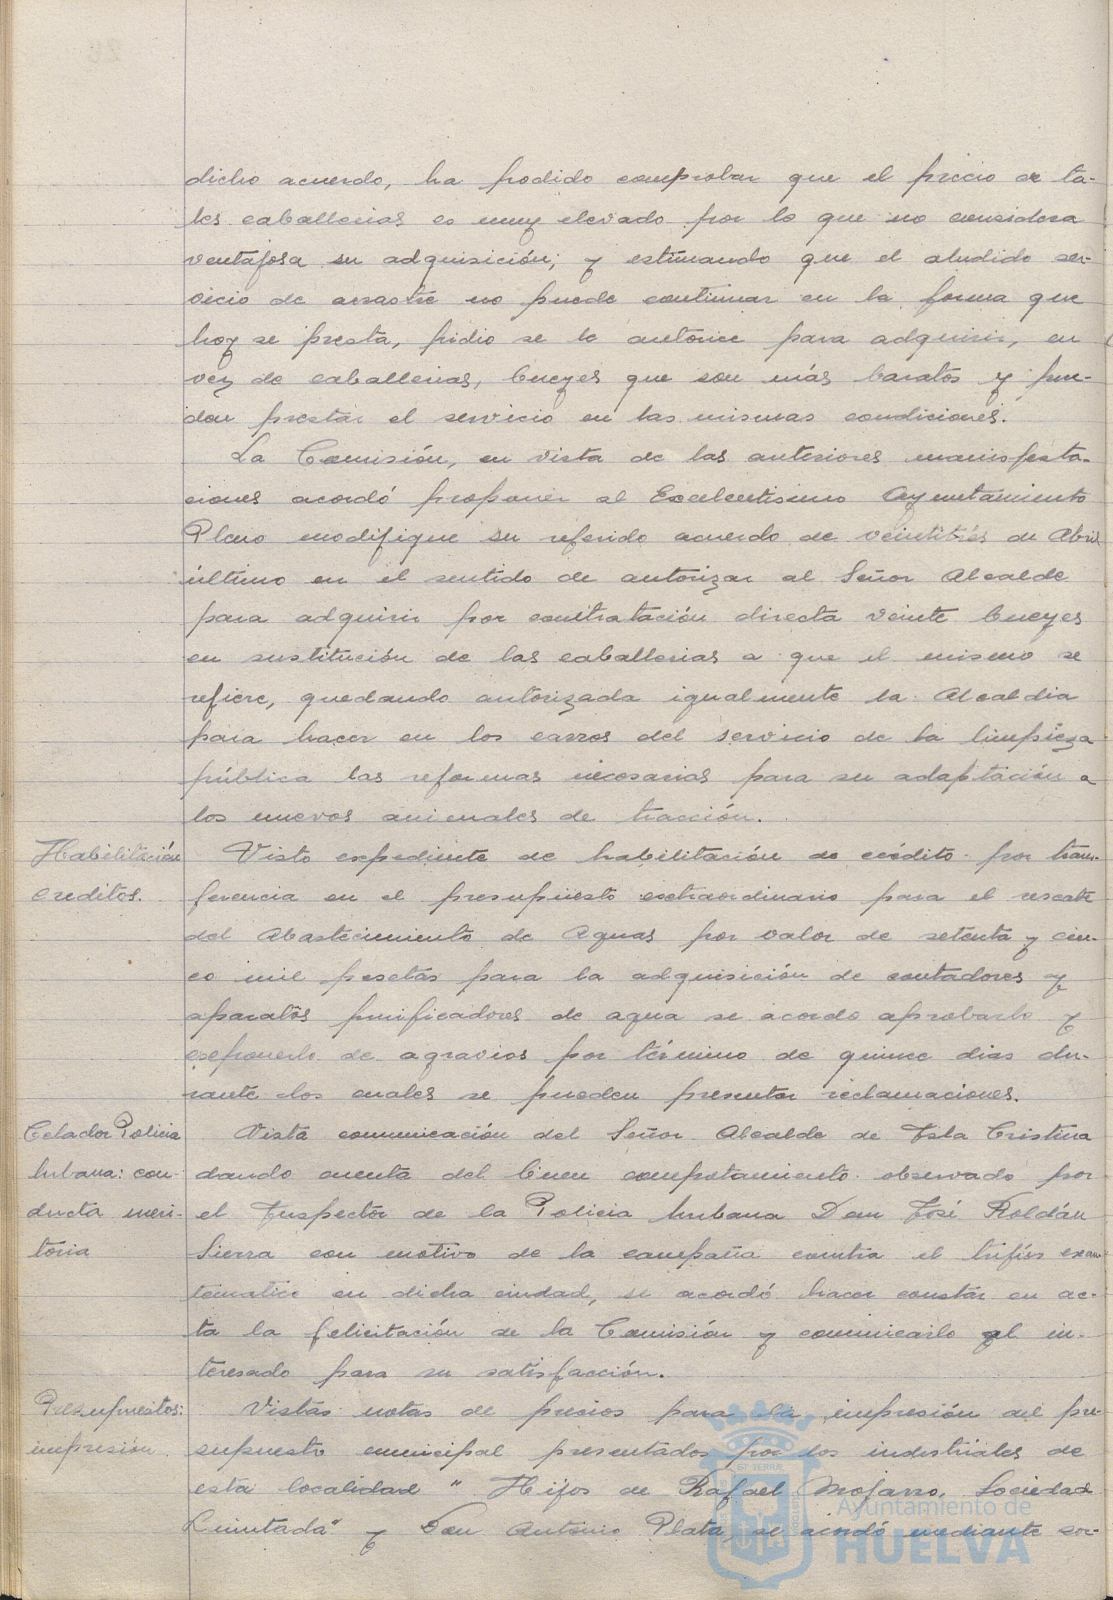 dicho acuerdo, ha podido comprobar que el precio de ta-
les caballerias es muy elevado por lo que no considera
ventajosa su adquisición; y estimando que el aludido ser-
vicio de arrastre no puede continuar en la forma que
hoy se presta, pidio se le autorice para adquirir, en
vez de caballerias, bueyes que son más baratos y pue-
den prestar el servicio en las mismas condiciones.
La Comisión, en vista de las anteriores manifesta-
ciones acordó proponer al Excelentisimo Ayuntamiento
Pleno modifique su referido acuerdo de veintitrés de Abril
último en el sentido de autorizar al Señor Alcalde
para adquirir por contratación directa veinte bueyes
en sustitución de las caballerias a que el mismo se
refiere, quedando autorizada igualmente la Alcaldia
para hacer en los carros del servicio de la limpieza
pública las reformas necesarias para su adaptación a
los nuevos animales de tracción.
Habilitación
creditos.
Visto expediente de habilitación de crédito por trans-
ferencia en el presupuesto extraordinario para el rescate
del Abastecimiento de Aguas por valor de setenta y cin-
co mil pesetas para la adquisición de contadores y
aparatos purificadores de agua se acordo aprobarlo y
exponerlo de agravios por término de quince dias du-
rante los cuales se pueden presentar reclamaciones.
Celador Policia
Urbana: con-
ducta meri-
toria
Vista comunicación del Señor Alcalde de Isla Cristina
dando cuenta del buen comportamiento observado por
el Inspector de la Policia Urbana Don José Roldán
Sierra con motivo de la campaña contra el tifus exan-
tematico en dicha ciudad, se acordó hacer constar en ac-
ta la felicitación de la Comisión y comunicarlo al in-
teresado para su satisfacción.
Presupuestos:
impresión
Vistas notas de precios para la impresión del pre-
supuesto municipal presentados por los industriales de
esta localidad "Hijos de Rafael Mojarro, Sociedad
Limitada" y Don Antonio Plata, se acordó mediante sor-
Ayuntamiento de
HUELVA